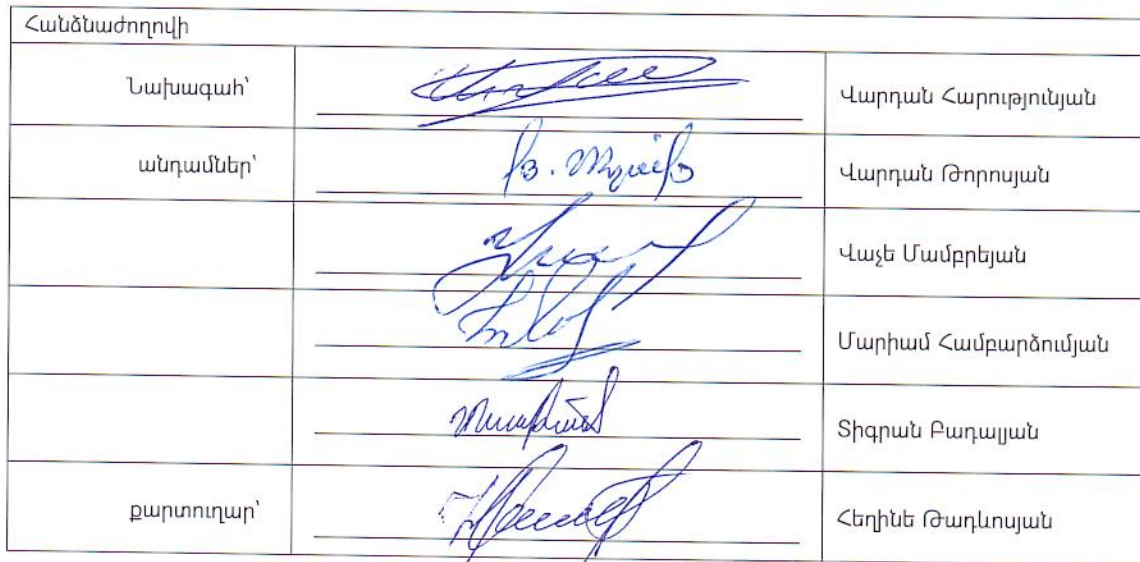 Հանձնաժողովի
Նախագահ՝ Վարդան Հարությունյան
անդամներ՝ Վարդան Թորոսյան
Վաչե Մամբրեյան
Մարիամ Համբարձումյան
Տիգրան Բադալյան
քարտուղար՝ Հեղինե Թադևոսյան